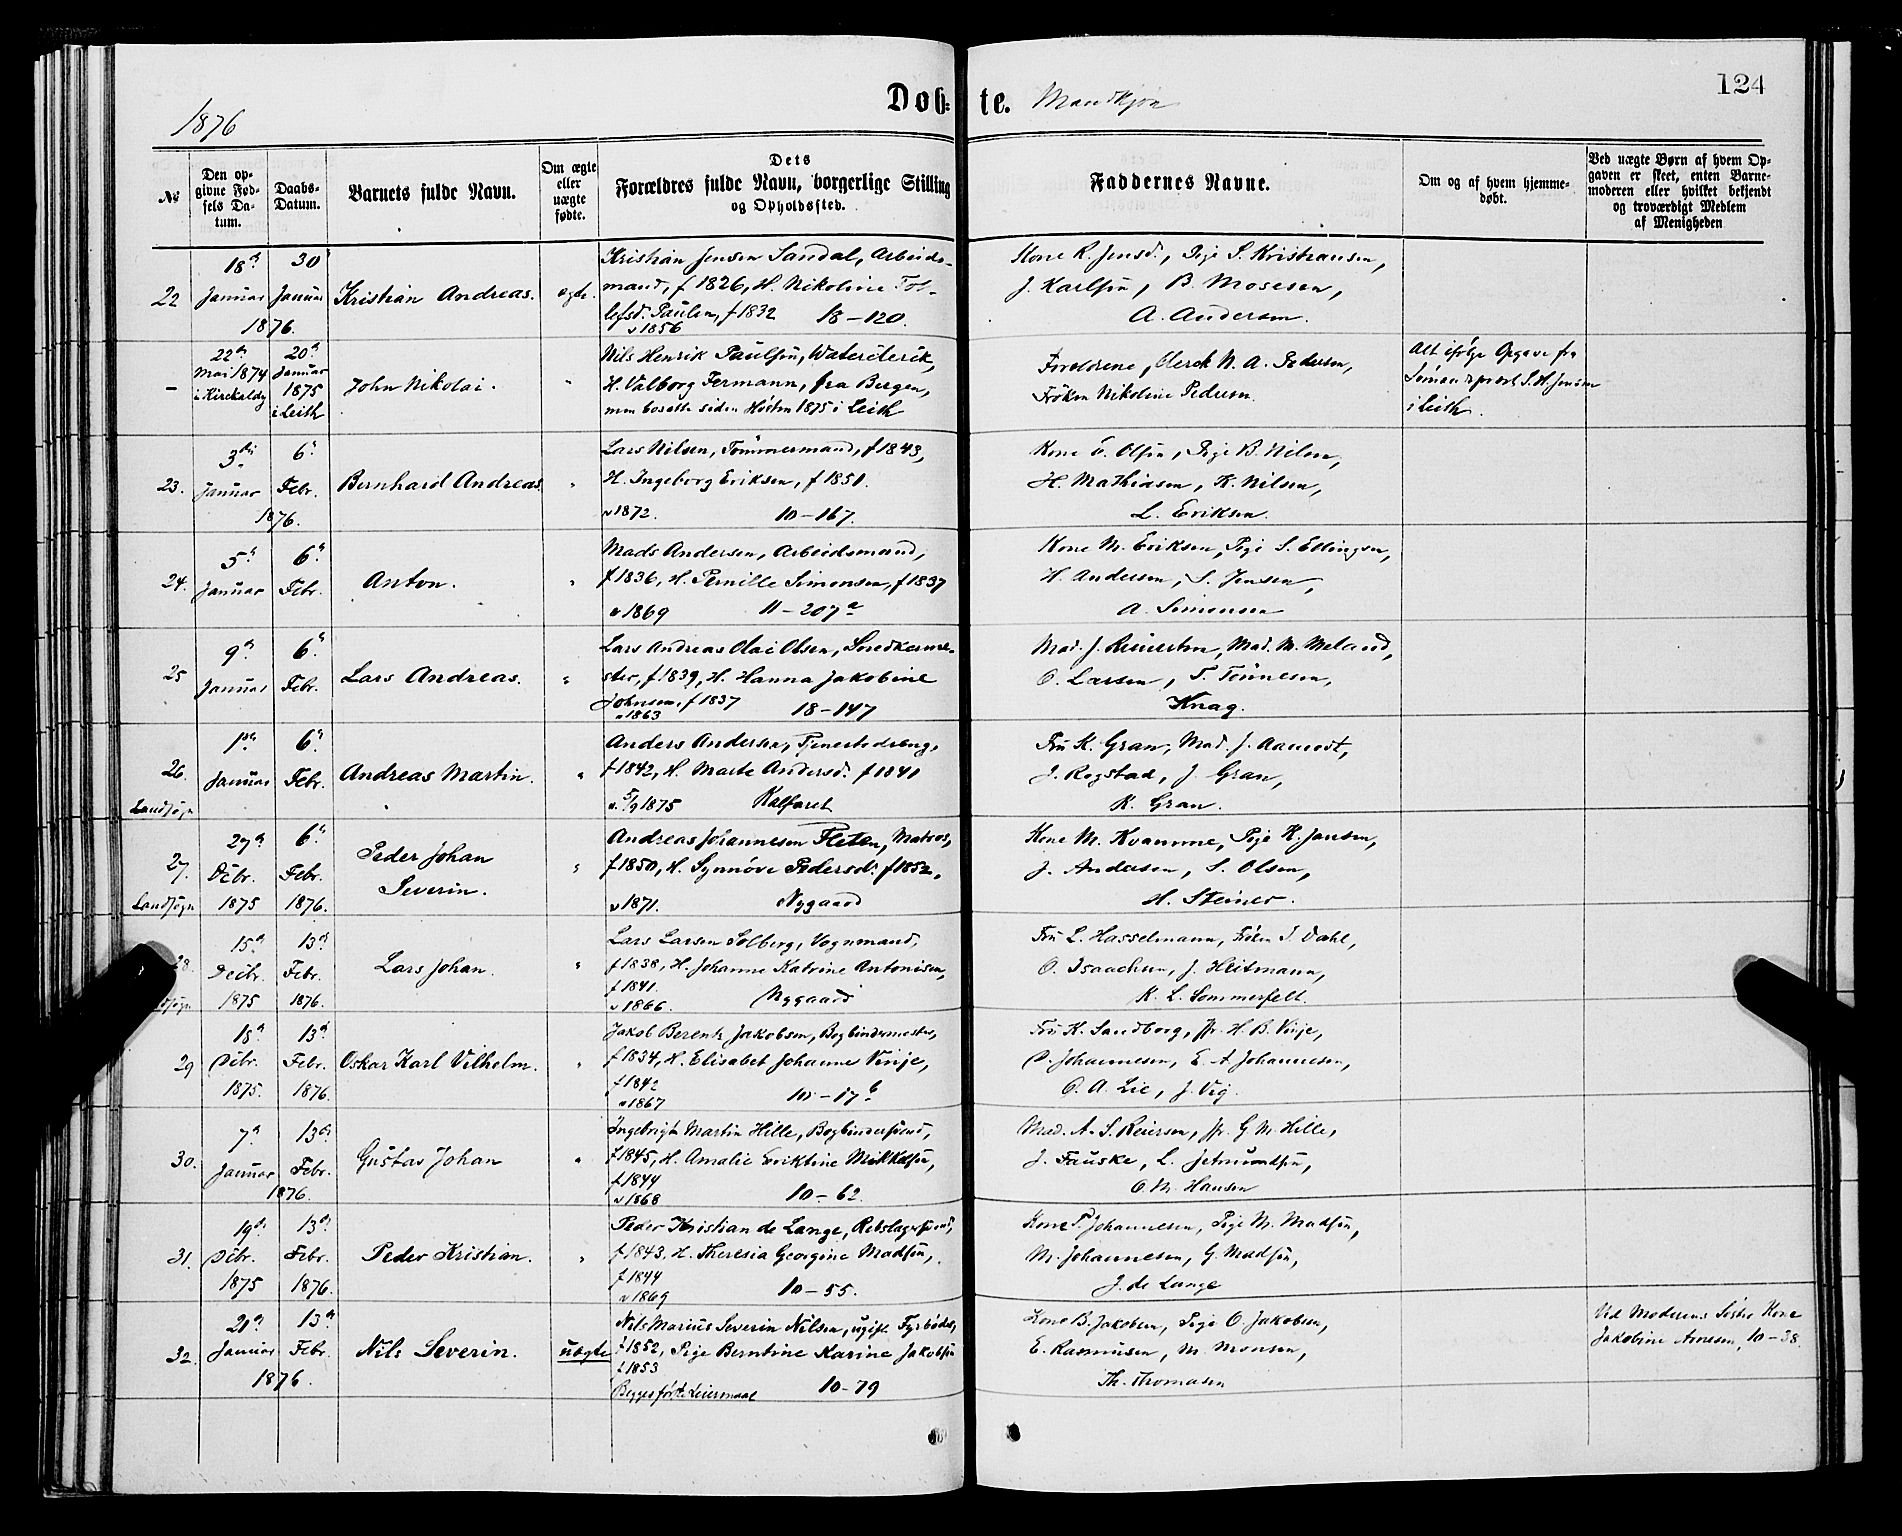 124
1876
Døb-te. Mandkjøn
No
Den op-
givne Fød-
sels Da-
tum.
Daabs-
Datum.
Barnets fulde Navn.
Om ægte
eller
uægte
fødte.
Dets
Forældres fulde Navn, borgerlige Stilling
og Opholdssted.
Faddernes Navne.
Om og af hvem hjemme-
døbt.
Ved uægte Børn af hvem Op-
gaven er skeet, enten Barne-
moderen eller hvilket bekjendt
og troværdigt Medlem
af Menigheden
22
18de Januar
30 Januar
1876.
Kristian Andreas.
ægte.
Kristian Jensen Sandal, Arbeids-
mand, f 1826, H. Nikoline Tol-
lefsd. Paulsen, f 1832 18-120.
v 1856
Kone R. Jensd., Pige S. Kristiansen,
J. Karlsøn, B. Mosesen,
A. Andersen.
-
22de
Mai 1874
i Kirckaldy
20de
Januar
1875
i Leith
John Nikolai.
"
Nils Henrik Paulsøn, Waterclerik,
H. Valborg Fermann, fra Bergen,
men bosatte siden Høsten 1875 i Leith
Foreldrene, Clerck N. A. Pedersen,
Frøken Nikoline Pedersen.
Alt ifølge Opgave fra
Sømandsprest S. H. Jensen
i Leith.
23.
3die Januar
6te Febr.
1876.
Bernhard Andreas.
"
Lars Nilsen, Tømmermand, f 1843,
H. Ingeborg Eriksen, f 1851.
v 1872. 10-167.
Kone O. Olsen, Pige B. Nilsen,
H. Mathiasen, K. Nilsen,
L. Eriksen.
24.
5te Januar
6te Febr.
Anton.
"
Mads Andersen, Arbeidsmand,
f 1836, H. Pernille Simonsen, f 1837
v 1869 11-207a
Kone M. Eriksen, Pige S. Ellingsen,
H. Andersen, S. Jensen,
A. Simonsen
25
9de Januar
6te Febr.
Lars Andreas.
"
Lars Andreas Olai Olsen, Snedkerme-
ster, f 1839, H. Hanna Jakobine
Johnsen, f 1837
v 1863 18-147
Mad. J. Reiersen, Mad. M. Meland,
O. Larsen, T. Tønnesen,
Knag.
26.
Landsogn
1ste Januar
6te Febr.
Andreas Martin.
"
Anders Andersen, Tjenestedreng,
f 1842, H. Marte Andersd. f 1841
v. 5/9 1875 Kalfaret
Fru K. Gran, Mad. J. Aamodt,
J. Rogstad, J. Gran,
K. Gran.
27.
Landsogn
27de
Debr.
1875
6te
Febr.
1876.
Peder Johan
Severin.
"
Andreas Johannesen Fleten, Matros,
f 1850, H. Synnøve Pedersd. f 1852,
v 1871. Nygaard
Kone M. Kvamme, Pige K. Jansen,
J. Andersen, S. Olsen,
H. Steiner.
28.
15de
Decbr.
1875
13de
Febr.
1876.
Lars Johan.
"
Lars Larsen Solberg, Vognmand,
f 1838, H. Johanne Katrine Antonisen,
f 1841.
v 1866. Nygaard
Fru L. Hasselmann, Frøken S. Dahl,
O. Isaachsen, J. Heitmann,
K. L. Sommerfelt.
29
18de
Debr.
1875.
13de
Febr.
1876.
Oskar Karl Vilhelm.
"
Jakob Berentz Jakobsen, Bogbindermester,
f 1834, H. Elisabet Johanne Vinje,
f 1842
v 1867 10-17b
Fru K. Sandborg, Jfr. H. B. Vinje,
D. Johannesen, E. A. Johannesen,
O. A. Lie, J. Vig.
30.
7de Januar
13de Febr.
1876.
Gustav Johan
"
Ingebrigt Martin Hille, Bogbindersvend,
f 1845, H. Amalie Eriktine Mikkelsen,
f 1844
v 1868 10-62.
Mad. A. S. Reiersen, Jfr. G. M. Hille,
J. Fauske, L. Jetmundsen,
O. M. Hansen
31.
19de
Debr.
1875
13de
Febr.
1876.
Peder Kristian.
"
Peder Kristian de Lange, Rebslagersvend,
f 1843, H. Theresia Georgine Madsøn,
f 1844
v 1869 10-55.
Kone P. Johannesen, Pige M. Madsøn,
M. Johannesen, G. Madsøn,
J. de Lange
32.
21de Januar
13de Febr.
1876.
Nils Severin.
uægte
Nils Marius Severin Nilsen, ugift Fyrbøder,
f 1852, Pige Berntine Karine Jakobsen
f 1853
Begges første Leiermaal 10-79
Kone B. Jakobsen, Pige O. Jakobsen,
E. Rasmusen, M. Monsen,
Th. Thomasen
Ved Moderens Søster Kone
Jakobine Arnesen, 10-38.